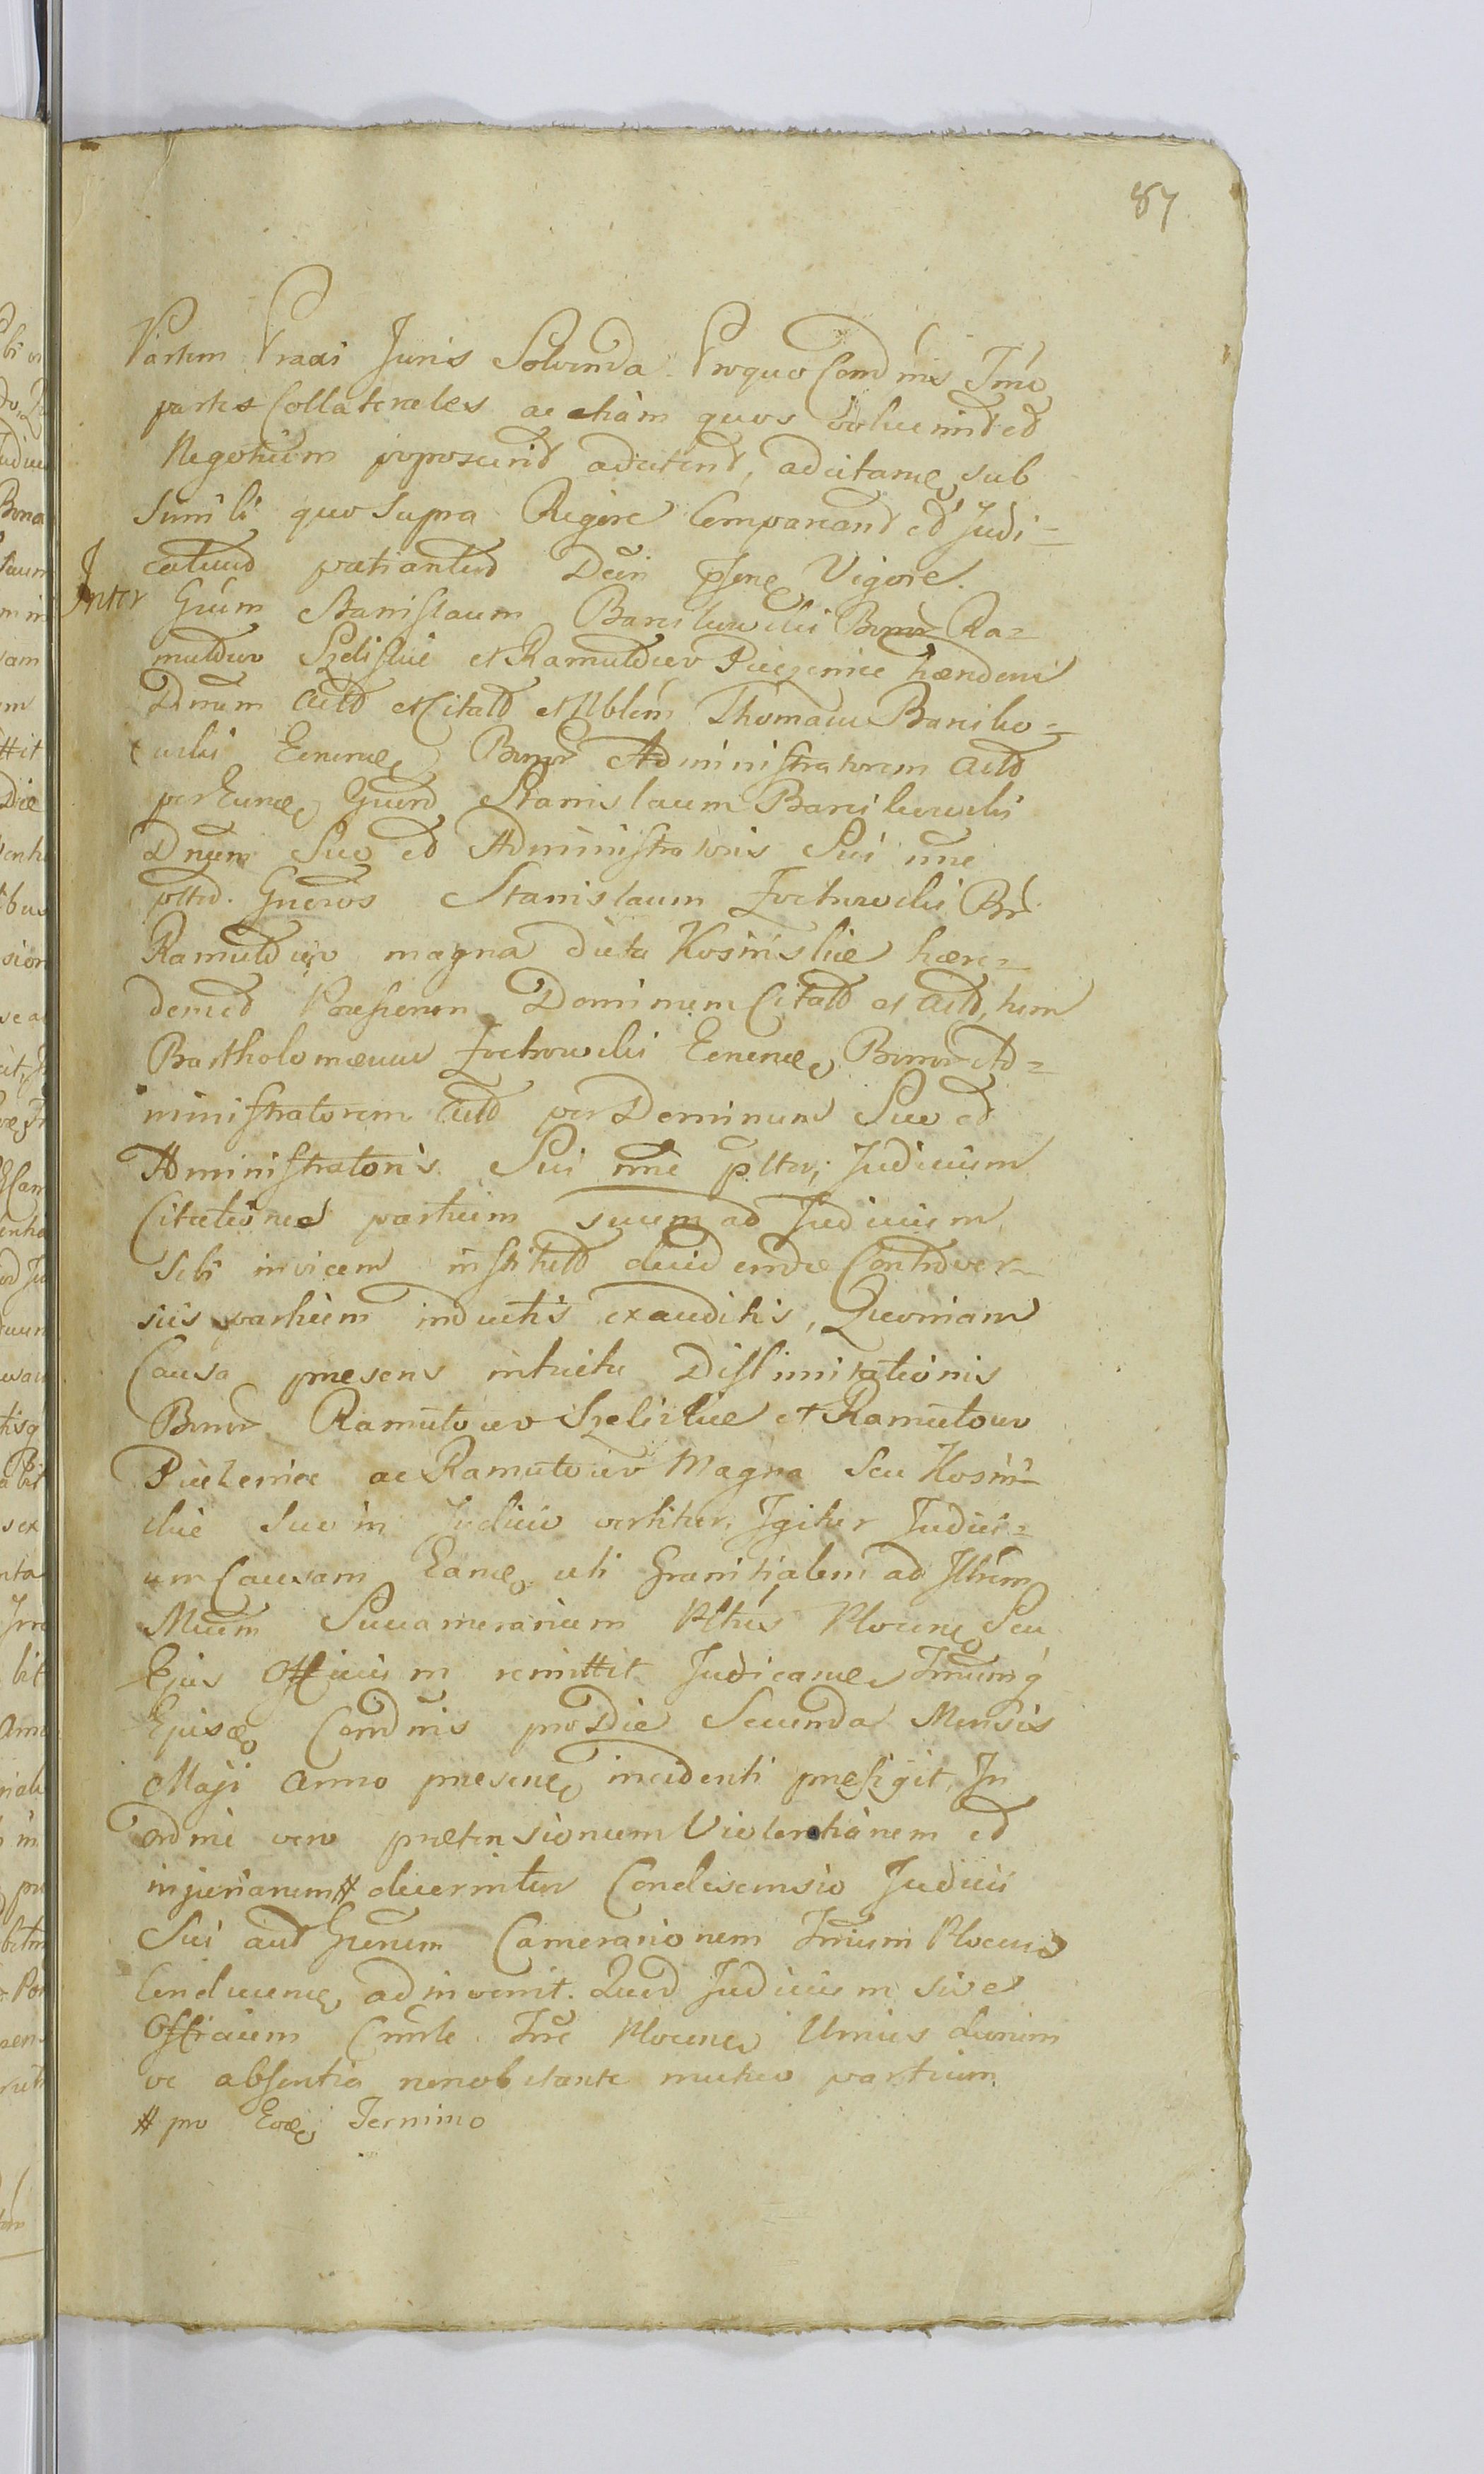 87
Partem Praxi Juris Solvenda. Pro quo Condnis Tmo
partes Collaterales ac etiam quos voluerint ed
Negotium proposcerint adcitent, adcitamq sub
simili quo supra Rigore Compareant ed Judi=
catum patiantur Dcni psnq Vigore.
Inter Gnum Stanislaum Barcikowski Bonor Ra=
mułdow Szeliskie et Ramułdow Pieczenice hæredem
Dnum Actd et Citatd et Nblem Thomam Barciko=
wski Eorumq Bonor Administratorem Actd
per Eumq Gnum Stanislaum Barcikowski
Dnum Suo ed Administratoris Sui nne
Gnoros Stanislaum Łochowski Br
Ramułdow magna dicta Kosinskie hære=
dem ed Possessorem Dominum Citatd et Actd, tum
Bartholomæum Łochowski Eorumq Bonor Ad=
ministratorem Actd per Dominum Suo ed
Administratoris Sui nne pltos; Judicium
Citationes partium suum ad Judicium
sibi invicem institutd dividendæ Controver=
siis partium inductis exauditis, Quoniam
Causa presens intuitu Dislimitationis
Bonor Ramułtow Szeliskie et Ramułtow
Pieczenice ac Ramułtow Magna Seu Kosin=
skie Suo in Judicio vertitur, Igitur Judici=
um Causam Eamq uti Granitialem ad Illrem
Mcum Succamerarium Pltus Plocenq Seu
Ejus Officium remittit Judicamq Tmumq
Ejusq Condnis pro Die Secunda Mensis
Maji Anno presenq incidenti prefigit, In
ordine vero prætensionum Violentiarum ed
injuriarum # decernitur Condescensio Judicii
Sui aut Gnorum Camerariorum Tmum Plocens
Conducenq adinvenit. Quod Judicium sive
Officium Cnsle Tmre Plocenq Unius duorum
ve absentia nonobstante mutuo partium
# pro Eodq Termino